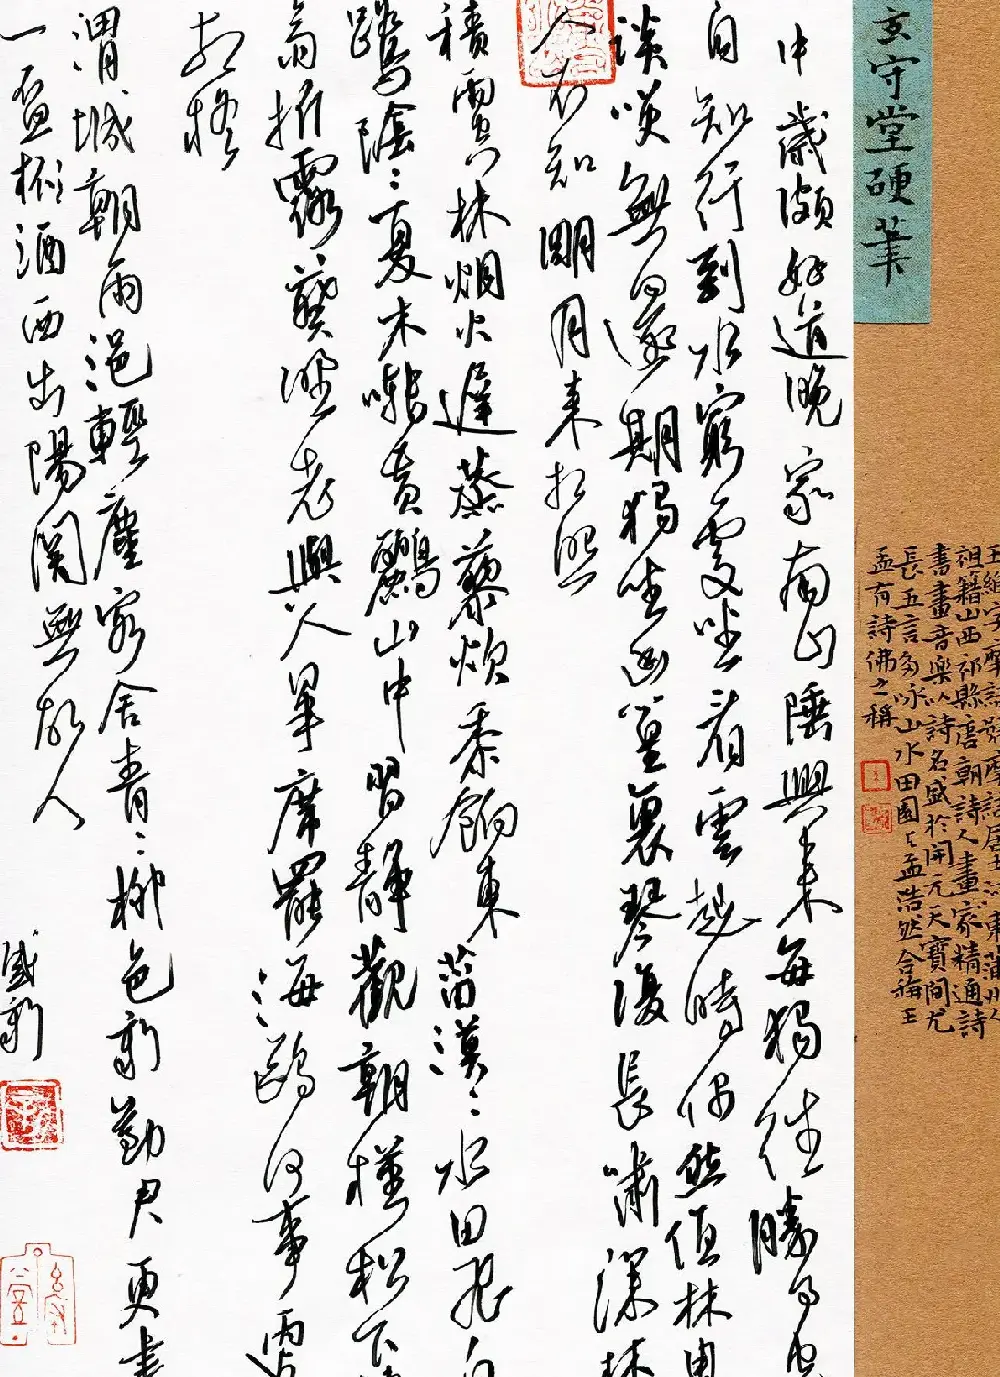 玄守堂硬筆
祖籍山西祁縣唐朝詩人畫家精通詩
書畫音樂以詩名盛於開元天寶間尤
長五言多咏山水田園与孟浩然合稱王
孟有詩佛之稱
中歲頗好道晚家南山陲興來每獨往勝事空
自知行到水窮處坐看雲起時偶然值林叟
談笑無 還期獨坐幽篁裏琴復長嘯深林
人不知明月來相照
積雨空林烟火遲蒸藜炊黍餉東菑漠漠水田飛白
鷺陰陰夏木囀黃鸝山中習靜觀朝槿松下清
齋折露葵野老與人爭席罷海鷗何事更
相疑
渭城朝雨浥輕塵客舍青青柳色新勸君更盡
一盃 酒西出陽關無故人
盛新